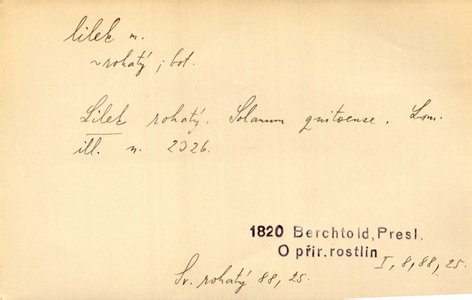 lilek m.
~rohatý; bot.
Lilek rohatý. Solanum quitoense. Lam.
ill. n. 2326.
1820 Berchtold, Presl.
O přír. rostlin I, 8, 88, 25.
Sv. rohatý 88, 25.